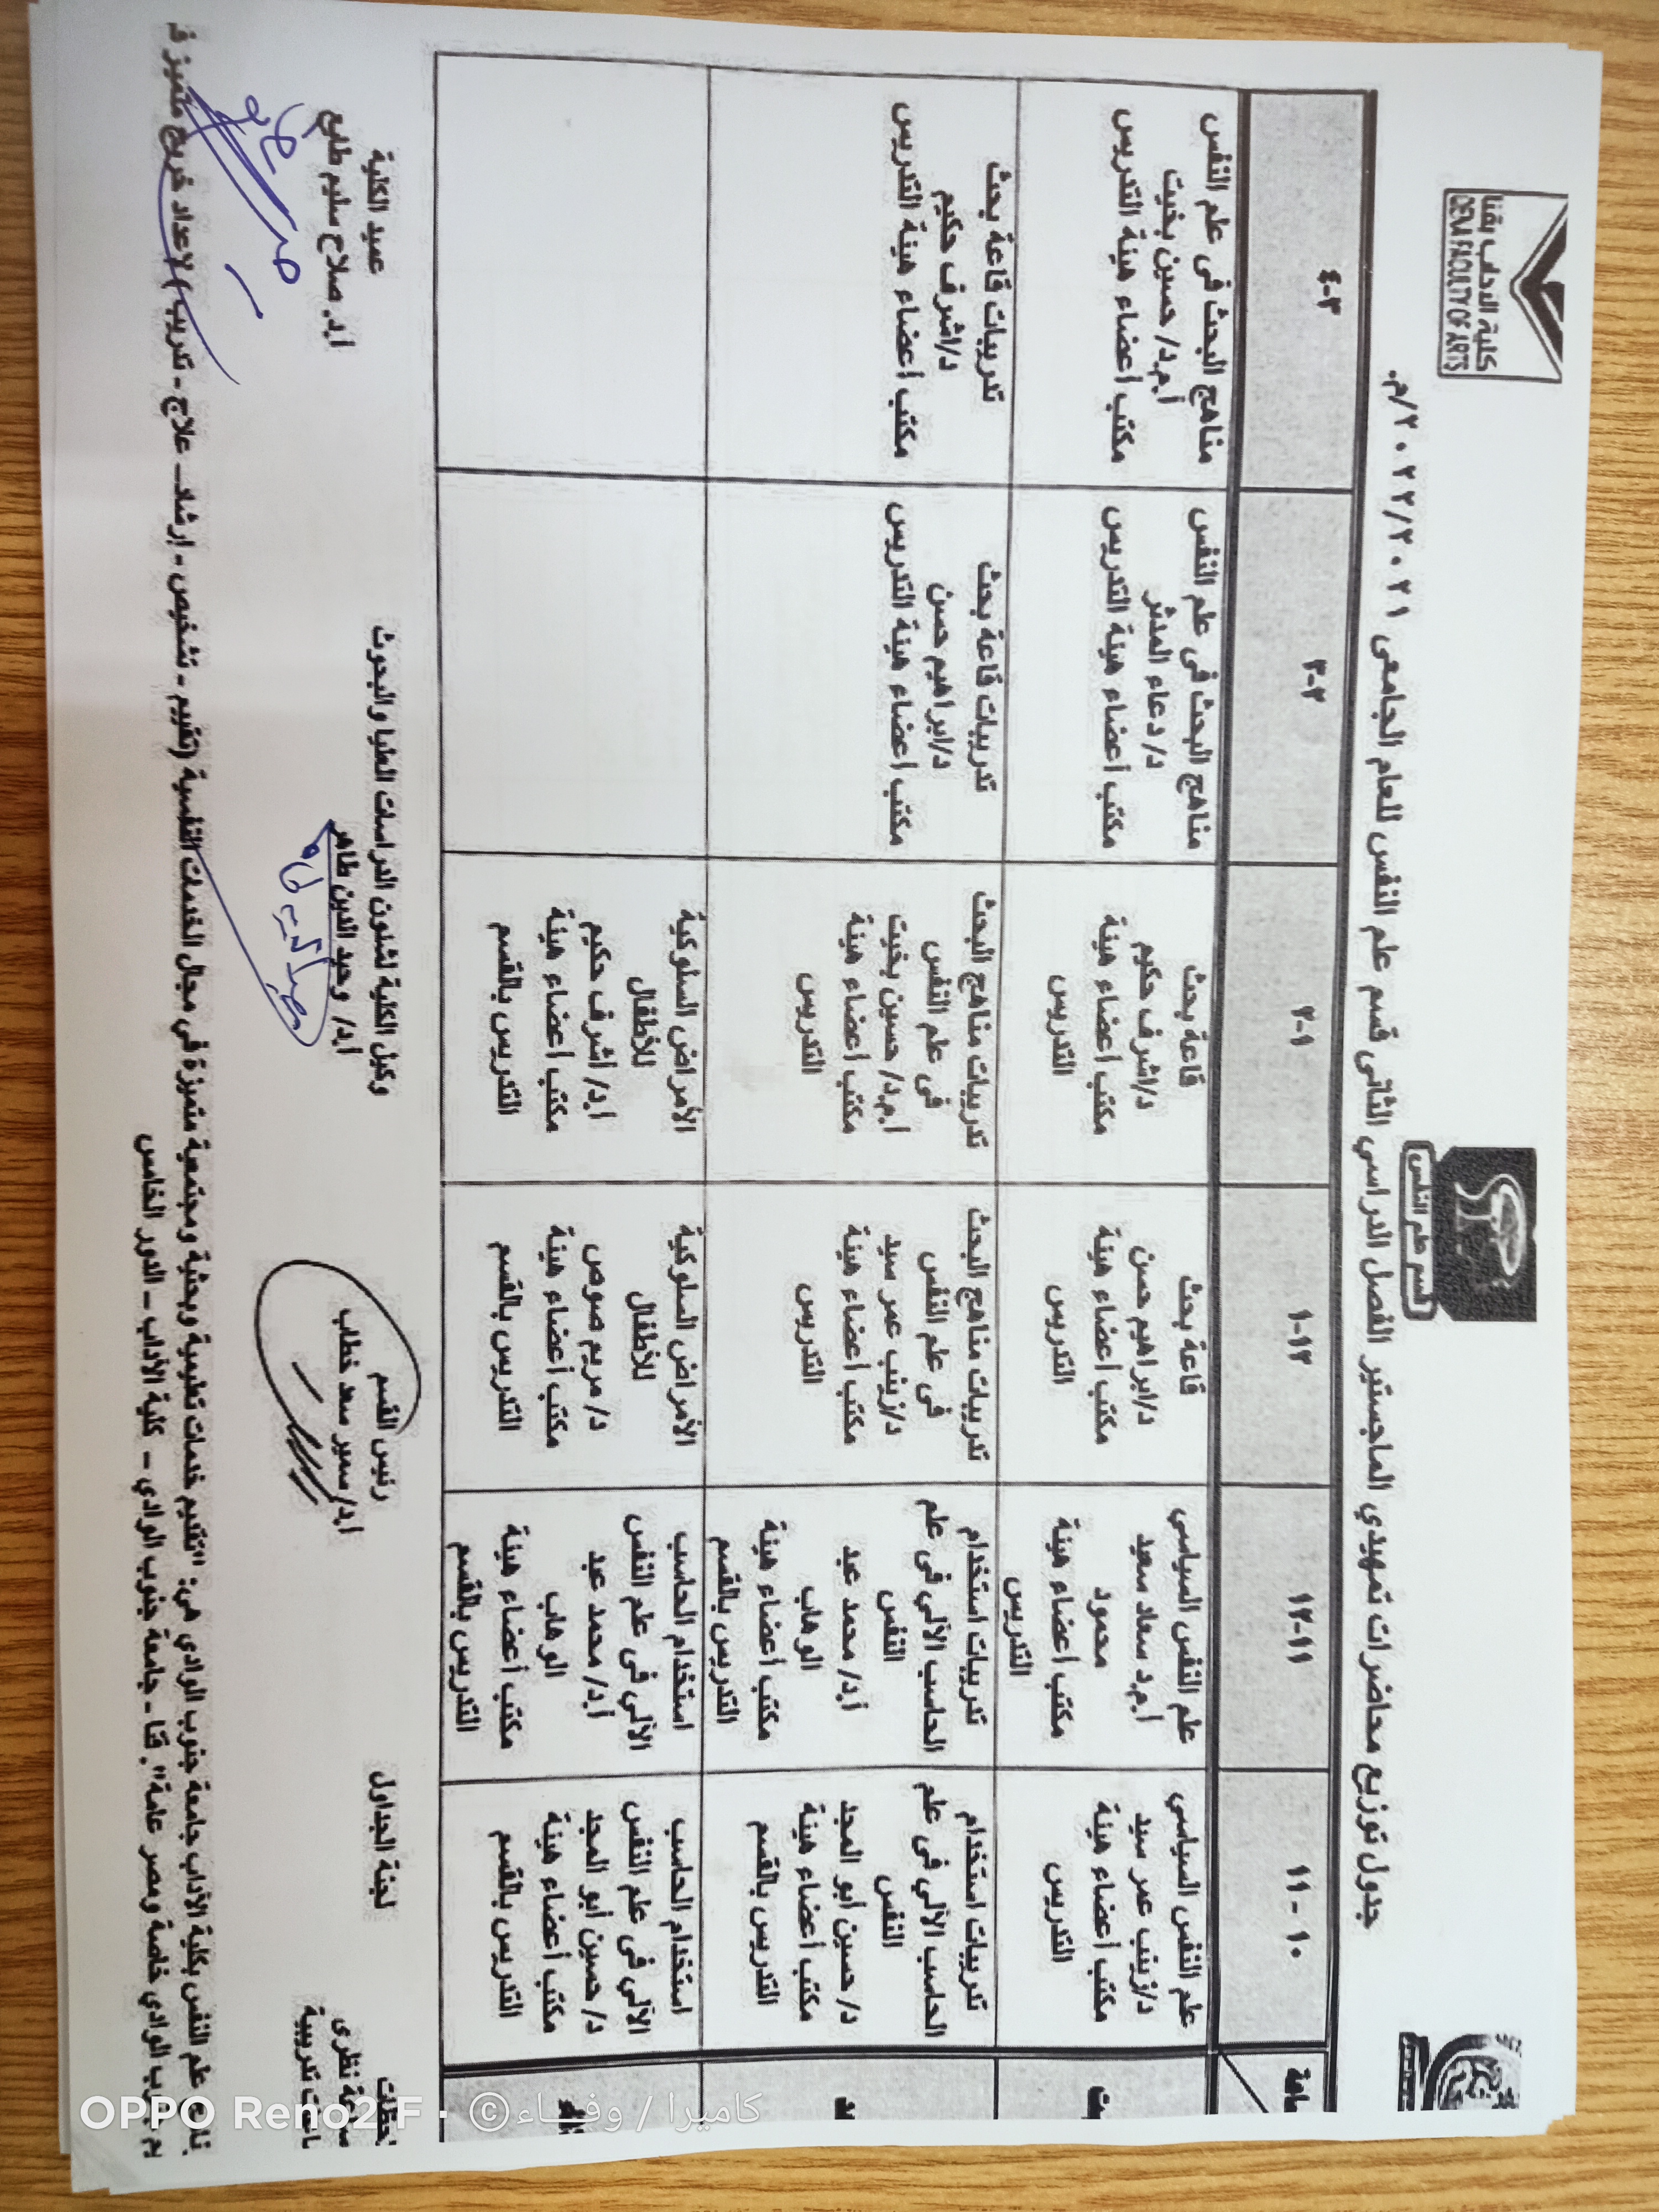 كلية الآداب بقنا
QENA FACULTY OF ARTS
قسم علم النفس
جدول توزيع محاضرات تمهيدي الماجستير الفصل الدراسي الثاني قسم علم النفس للعام الجامعى ٢٠٢٢/٢٠٢١/م.
١٠ - ١١
١١-١٢
١٢-١
١-٢
٢-٣
٣-٤
علم النفس السياسي
د/زينب عمر سيد
مكتب أعضاء هيئة
التدريس
علم النفس السياسي
أ.م.د سعاد سعيد
محمود
مكتب أعضاء هيئة
التدريس
قاعة بحث
د/ابراهيم حسن
مكتب أعضاء هيئة
التدريس
قاعة بحث
د/اشرف حكيم
مكتب أعضاء هيئة
التدريس
مناهج البحث فى علم النفس
د/ دعاء المدثر
مكتب أعضاء هيئة التدريس
مناهج البحث فى علم النفس
أ.م.د/ حسين بخيت
مكتب أعضاء هيئة التدريس
تدريبات استخدام
الحاسب الآلي فى علم
النفس
د/ حسين أبو المجد
مكتب أعضاء هيئة
التدريس بالقسم
تدريبات استخدام
الحاسب الآلي فى علم
النفس
أ.د/ محمد عبد
الوهاب
مكتب أعضاء هيئة
التدريس بالقسم
تدريبات مناهج البحث
فى علم النفس
د/زينب عمر سيد
مكتب أعضاء هيئة
التدريس
تدريبات مناهج البحث
فى علم النفس
ا.م.د/ حسين بخيت
مكتب أعضاء هيئة
التدريس
تدريبات قاعة بحث
د/ابراهيم حسن
مكتب أعضاء هيئة التدريس
تدريبات قاعة بحث
د/اشرف حكيم
مكتب أعضاء هيئة التدريس
استخدام الحاسب
الآلي فى علم النفس
د/ حسين أبو المجد
مكتب أعضاء هيئة
التدريس بالقسم
استخدام الحاسب
الآلي فى علم النفس
أ.د/ محمد عبد
الوهاب
مكتب أعضاء هيئة
التدريس بالقسم
الأمراض السلوكية
للأطفال
د/ مريم صوص
مكتب أعضاء هيئة
التدريس بالقسم
الأمراض السلوكية
للأطفال
أ.د/ أشرف حكيم
مكتب أعضاء هيئة
التدريس بالقسم
نظرى
تدريبية
لجنة الجداول
رئيس القسم
أ.د/ سمير سعد خطاب
وكيل الكلية لشئون الدراسات العليا والبحوث
أ.د/ وحيد الدين طاهر
عميد الكلية
أ.د. صلاح سليم طايع
علم النفس بكلية الآداب جامعة جنوب الوادي هي: "تقديم خدمات تعليمية وبحثية ومجتمعية متميزة في مجال الخدمات النفسية (تقييم - تشخيص - إرشاد - علاج - تدريب) لإعداد خريج متميز
الوادي خاصة ومصر عامة". قنا - جامعة جنوب الوادي - كلية الآداب - الدور الخامس
OPPO Reno2 F · © كاميرا / وفـــاء